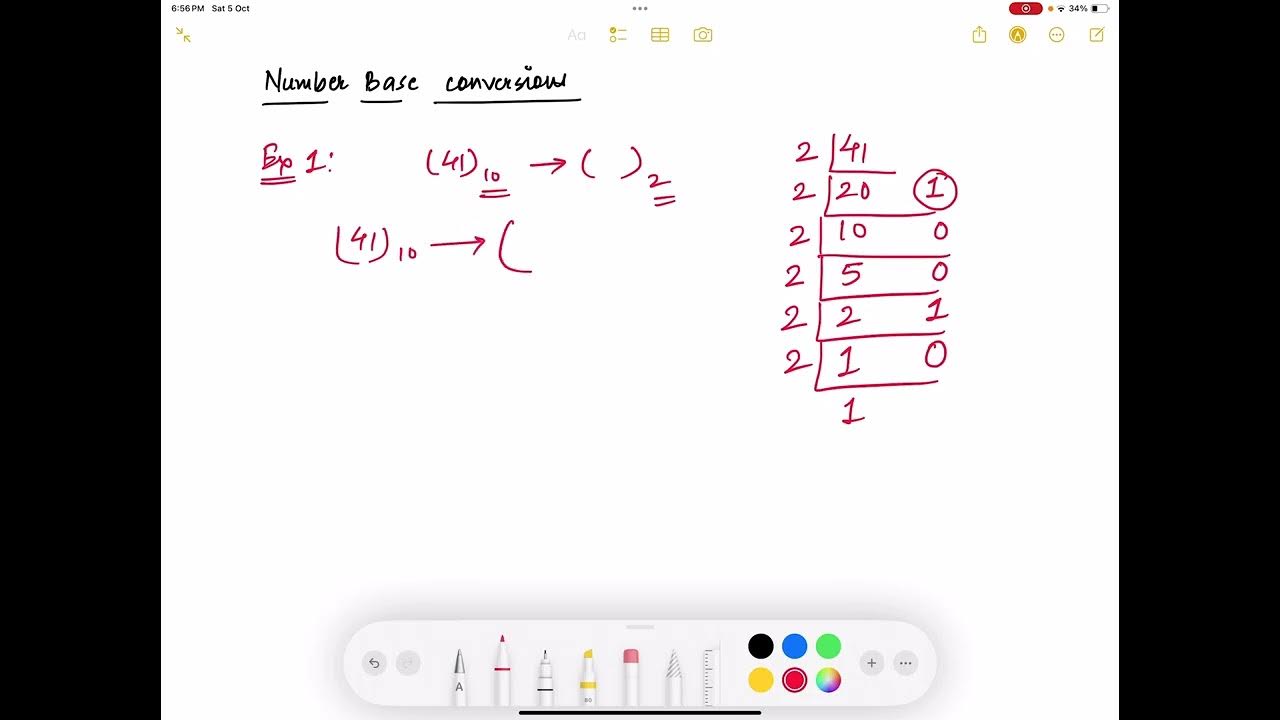 6:56 PM Sat 5 Oct
34%
Aa
Number Base conversions
Exp 1: (41)10 → ( )2
(41)10 → (
2 41
2 20 1
2 10 0
2 5 0
2 2 1
2 1 0
1
A
80